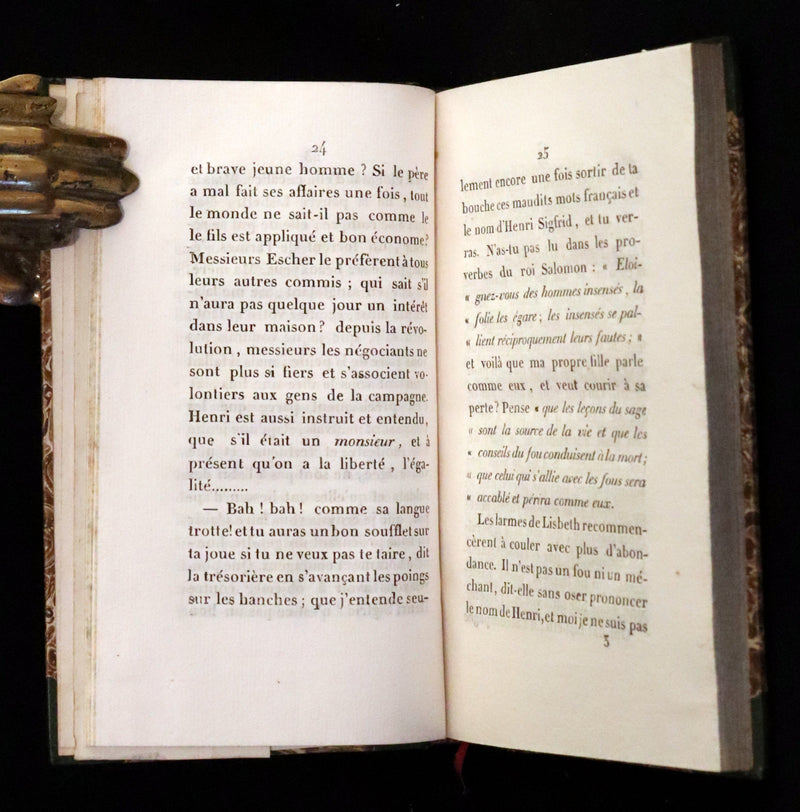 24
et brave jeune homme ? Si le père
a mal fait ses affaires une fois, tout
le monde ne sait-il pas comme le
le fils est appliqué et bon économe?
Messieurs Escher le préfèrent à tous
leurs autres commis ; qui sait s'il
n'aura pas quelque jour un intérêt
dans leur maison ? depuis la révo-
lution, messieurs les négociants ne
sont plus si fiers et s'associent vo-
lontiers aux gens de la campagne.
Henri est aussi instruit et entendu,
que s'il était un monsieur, et à
présent qu'on a la liberté, l'éga-
lité.........
— Bah ! bah ! comme sa langue
trotte! et tu auras un bon soufflet sur
ta joue si tu ne veux pas te taire, dit
la trésorière en s'avançant les poings
sur les hanches ; que j'entende seu-
25
lement encore une fois sortir de ta
bouche ces maudits mots français et
le nom d'Henri Sigfrid, et tu ver-
ras. N'as-tu pas lu dans les pro-
verbes du roi Salomon : « Eloi-
« gnez-vous des hommes insensés, la
« folie les égare ; les insensés se pal-
« lient réciproquement leurs fautes ; »
et voilà que ma propre fille parle
comme eux, et veut courir à sa
perte? Pense « que les leçons du sage
« sont la source de la vie et que les
« conseils du fou conduisent à la mort ;
« que celui qui s'allie avec les fous sera
« accablé et périra comme eux.
Les larmes de Lisbeth recommen-
cèrent à couler avec plus d'abon-
dance. Il n'est pas un fou ni un mé-
chant, dit-elle sans oser prononcer
le nom de Henri, et moi je ne suis pas
3